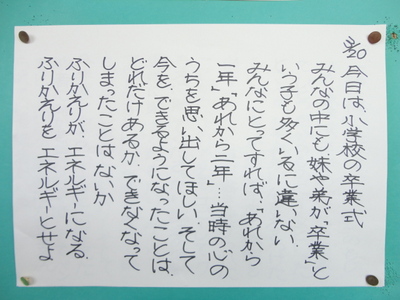 3/20 今日は、小学校の卒業式
みんなの中にも妹や弟が「卒業」と
いう子も多くいるに違いない。
みんなにとってすれば、「あれから
一年」「あれから二年」…当時の心の
うちを思い出してほしい。そして
今を、できるようになったことは、
どれだけあるか、できなくなって
しまったことは、ないか
ふりかえりが、エネルギーになる。
ふりかえりを、エネルギーとせよ